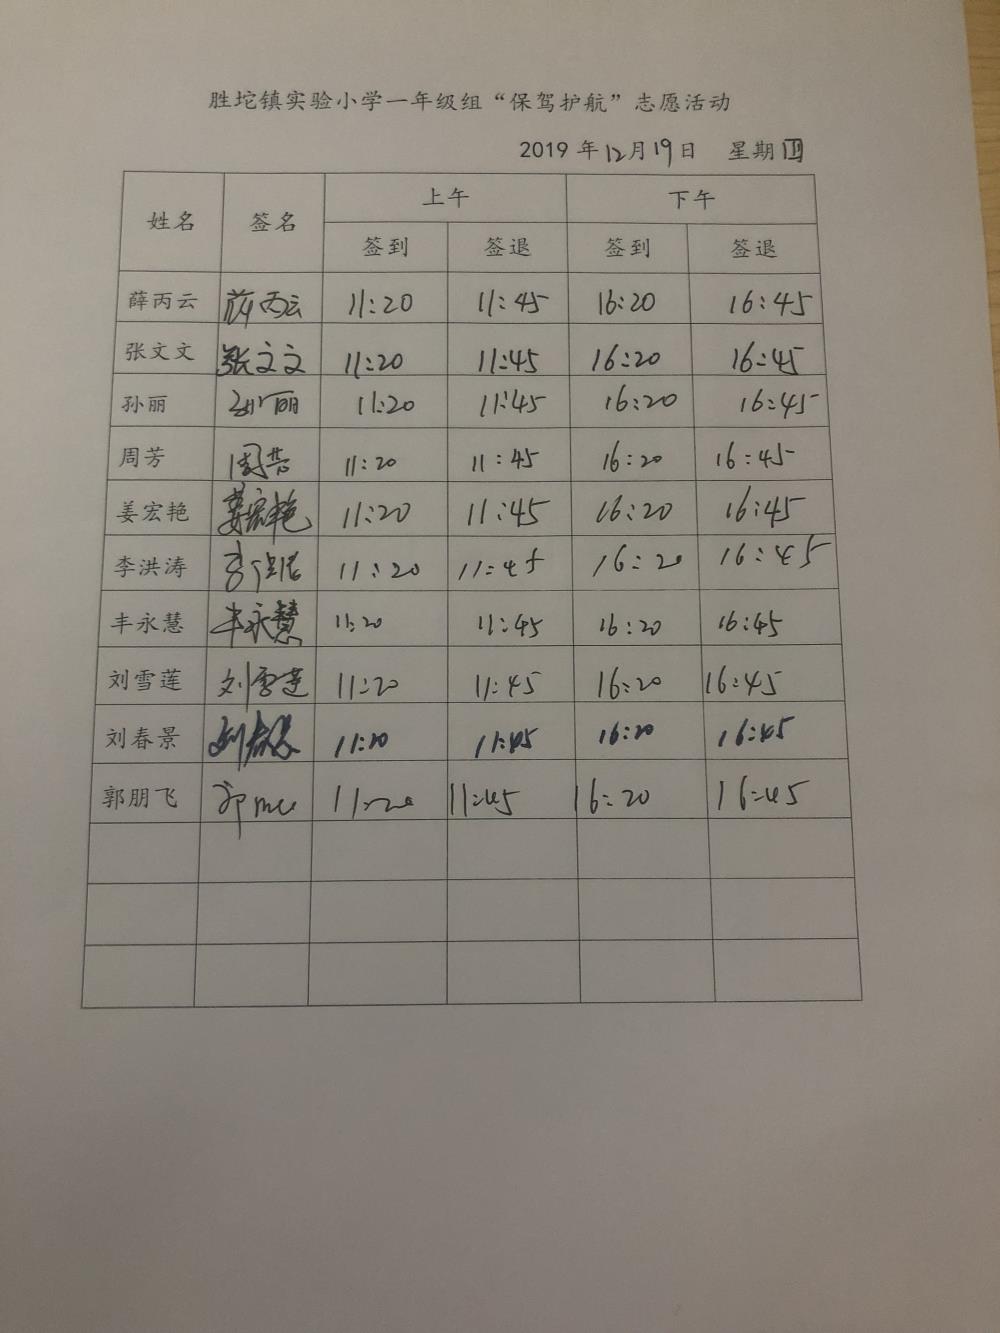 胜坨镇实验小学一年级组“保驾护航”志愿活动
2019 年 12 月 19 日 星期四
姓名 签名 上午 下午
签到 签退 签到 签退
薛丙云 薛丙云 11:20 11:45 16:20 16:45
张文文 张文文 11:20 11:45 16:20 16:45
孙丽 孙丽 11:20 11:45 16:20 16:45
周芳 周芳 11:20 11:45 16:20 16:45
姜宏艳 姜宏艳 11:20 11:45 16:20 16:45
李洪涛 李洪涛 11:20 11:45 16:20 16:45
丰永慧 丰永慧 11:20 11:45 16:20 16:45
刘雪莲 刘雪莲 11:20 11:45 16:20 16:45
刘春景 刘春景 11:20 11:45 16:20 16:45
郭朋飞 11:20 11:45 16:20 16:45